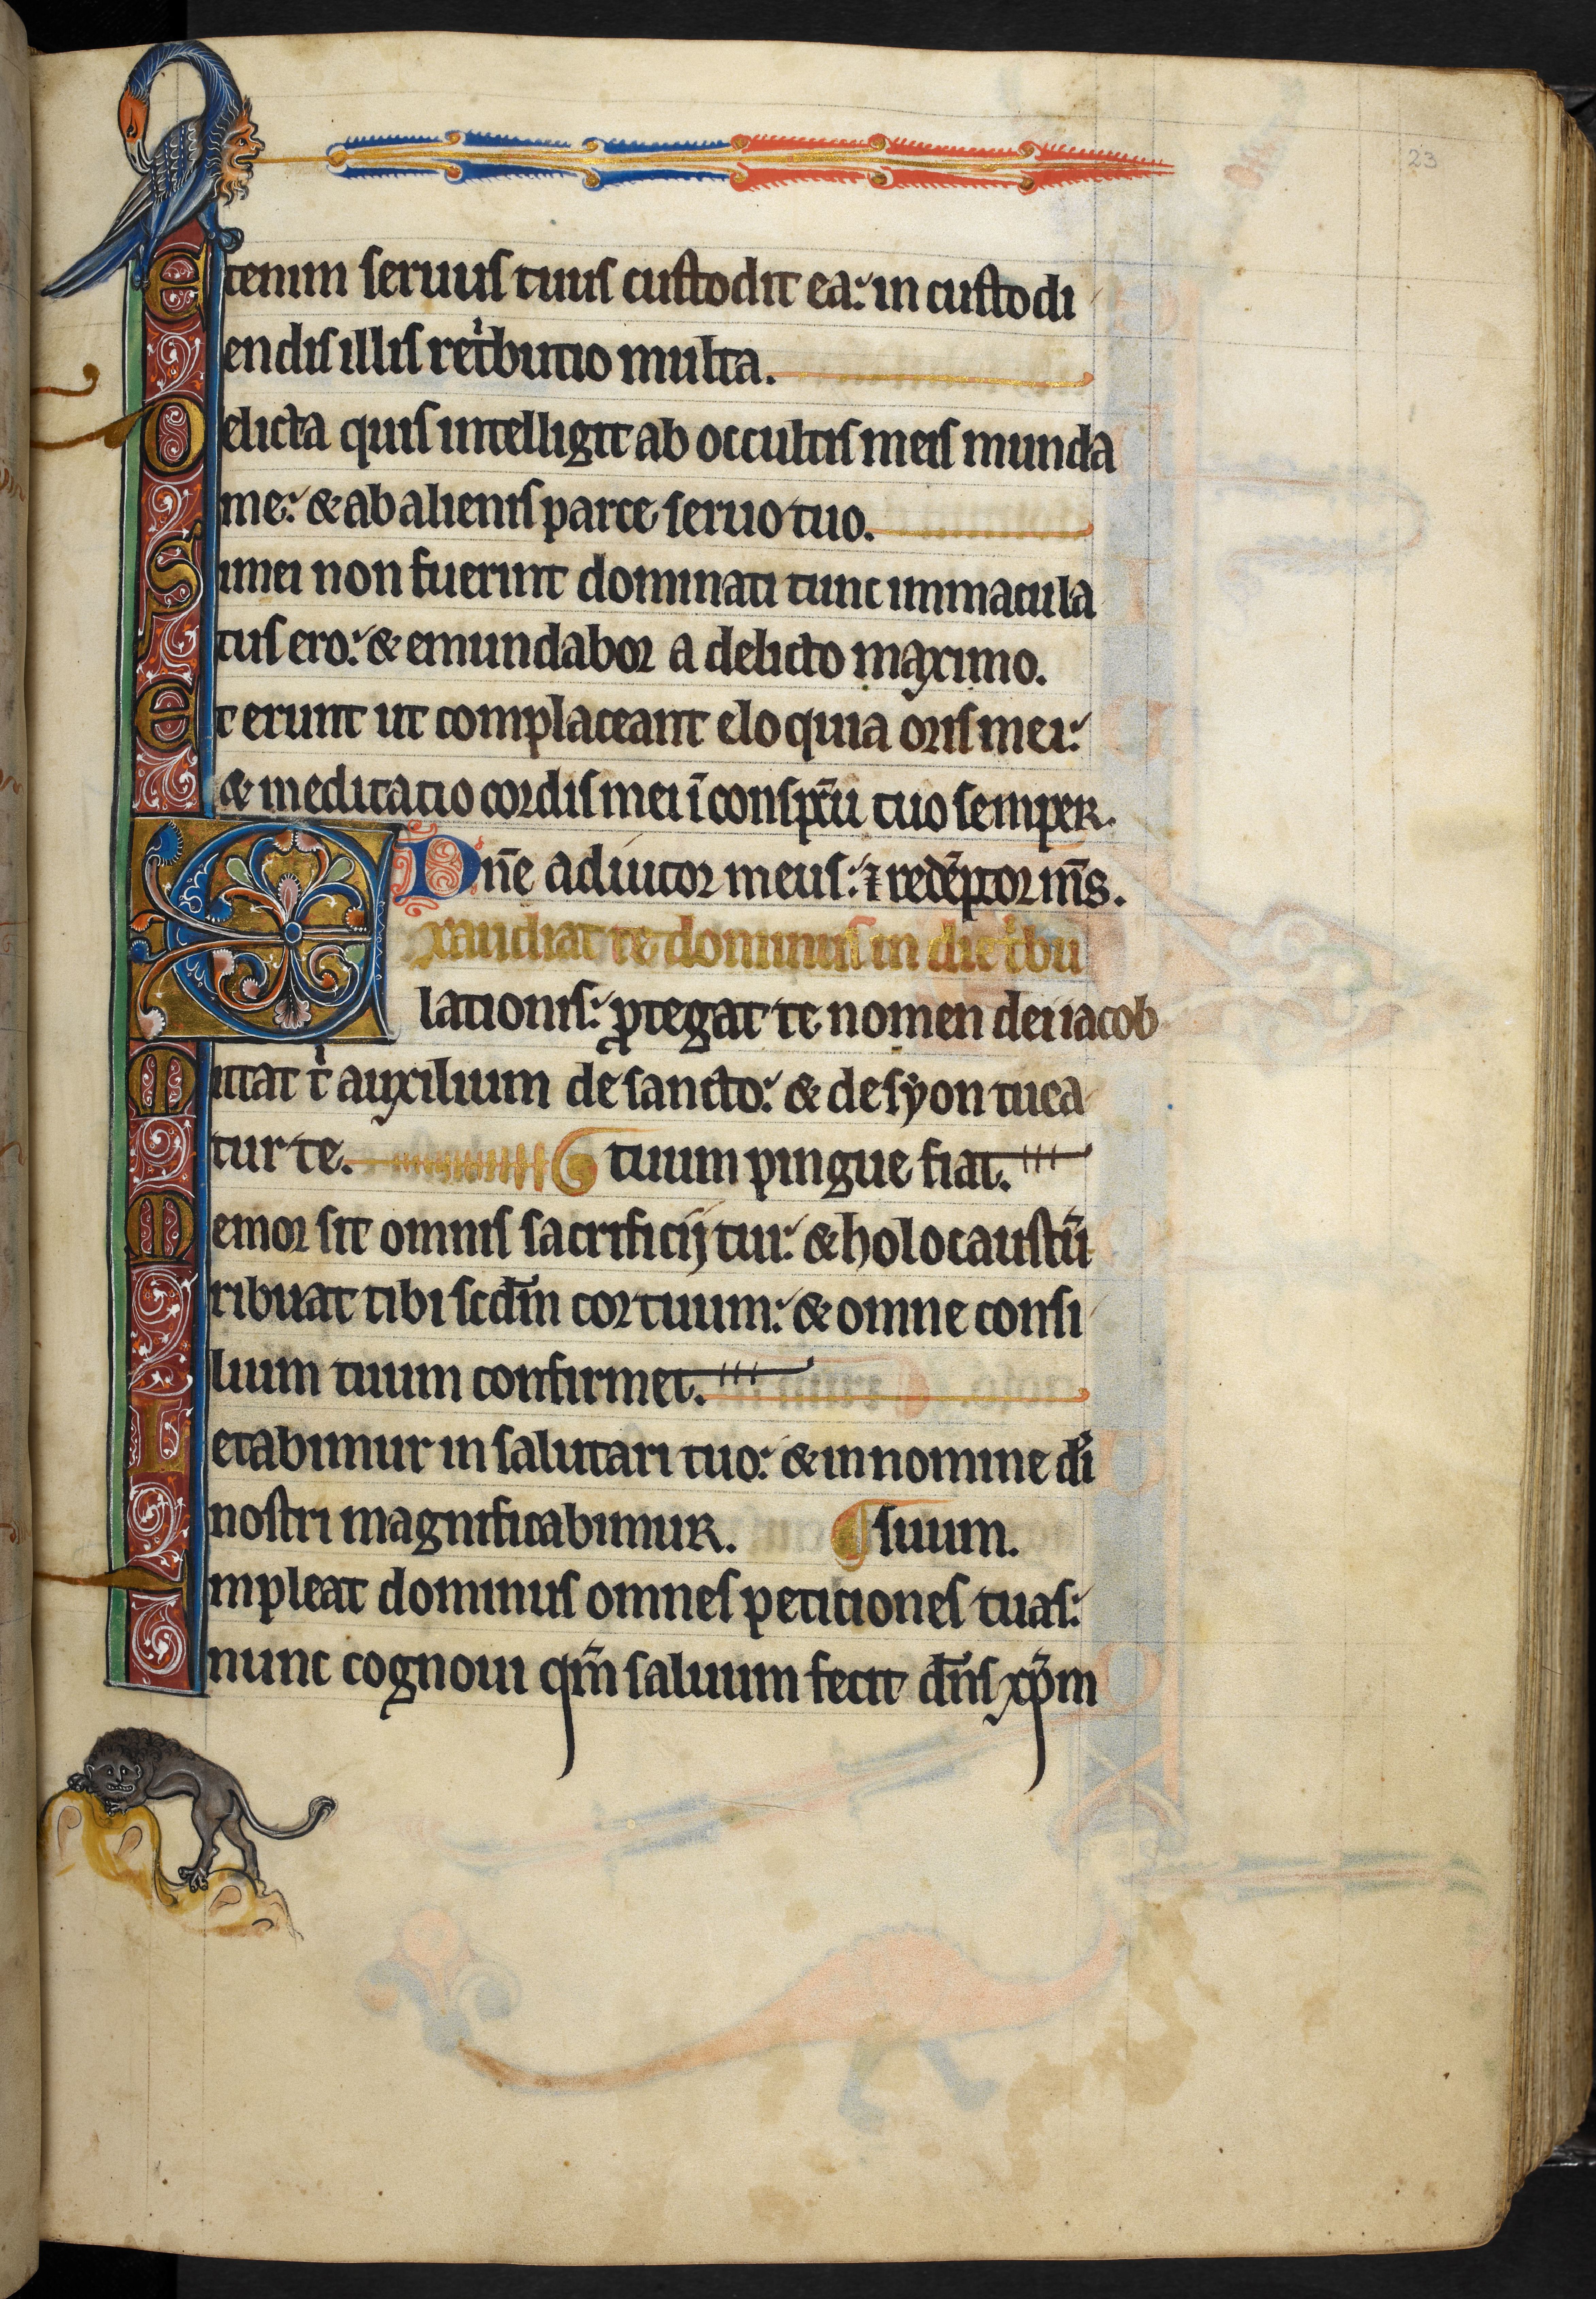 23
etenim seruus tuus custodit ea: in custodi
endis illis retⁱbutio multa.
Delicta quis intelligit ab occultis meis munda
me: & ab alienis parce seruo tuo.
Si mei non fuerint dominati tunc immacula
tus ero: & emundabor a delicto maximo.
Et erunt ut complaceant eloquia oris mei:
& meditatio cordis mei ī conspc̄tu tuo semper.
Dn̄e adiutor meus: ⁊ redēptor m̄s.
Exaudiat te dominus in die tⁱbu
lationis: ꝓtegat te nomen dei iacob
Mittat tⁱ auxilium de sancto: & de syon tuea
tur te. tuum pingue fiat.
Memor sit omnis sacrificij tui: & holocaustū
Tribuat tibi scd̄m cor tuum: & omne consi
lium tuum confirmet.
Letabimur in salutari tuo: & in nomine dī
nostri magnificabimur. suum.
Impleat dominus omnes peticiones tuas:
nunc cognoui qm̄ saluum fecit dn̄s xp̄m